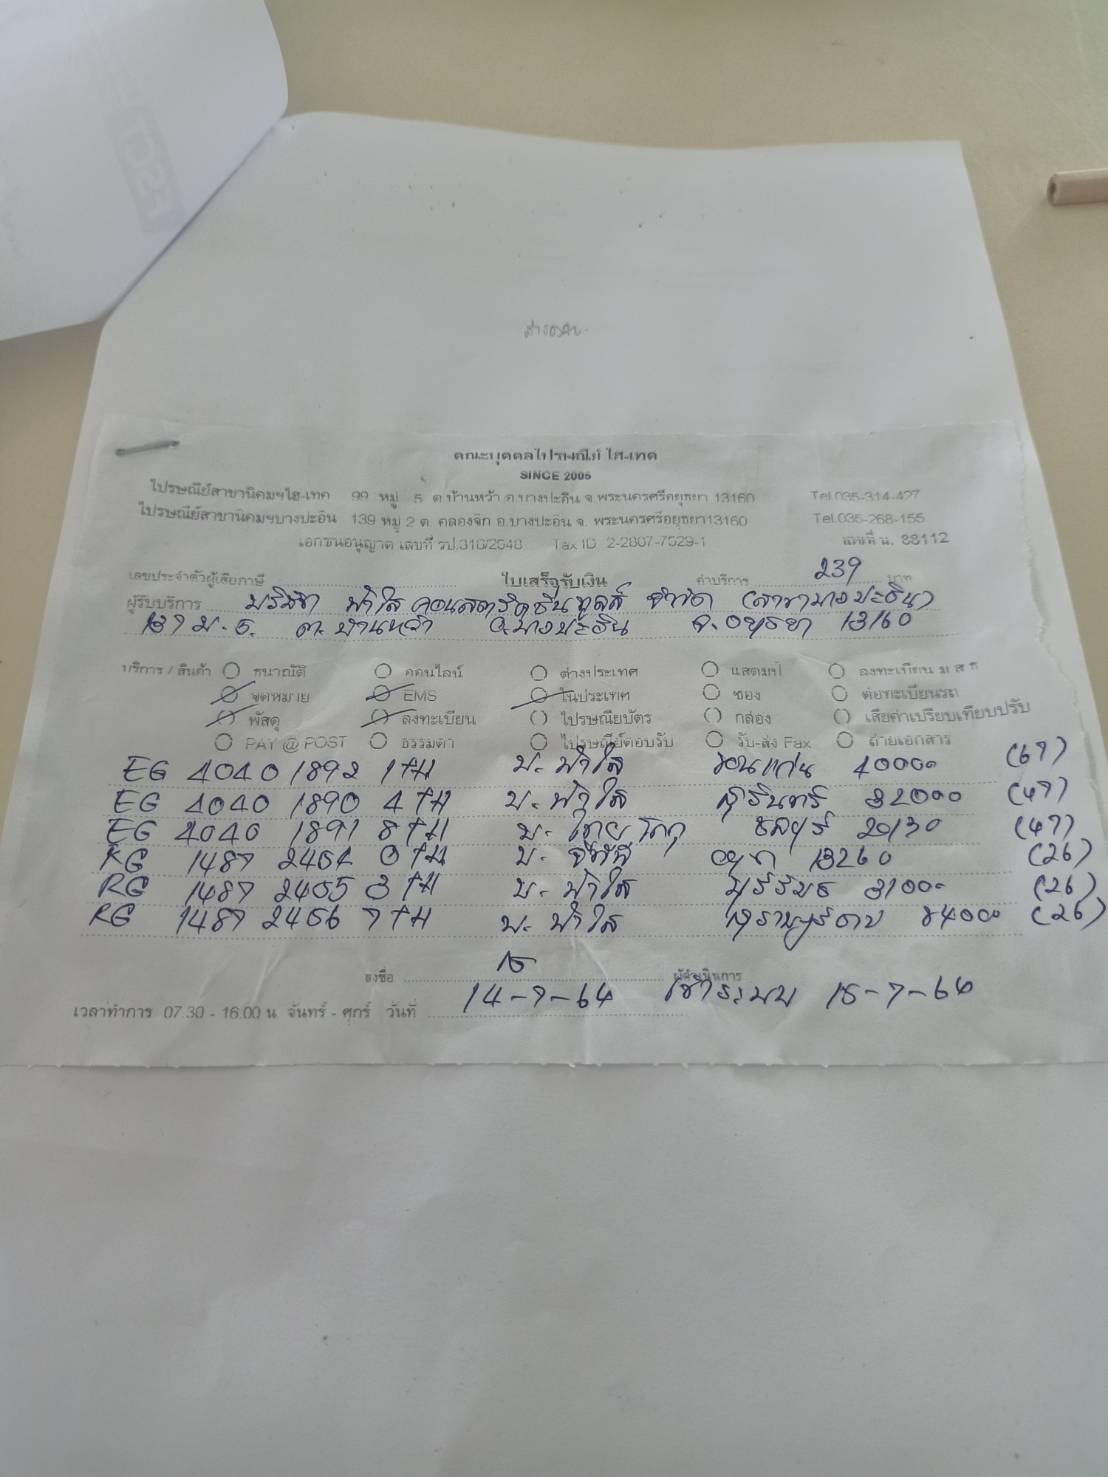 คณะบุคคลไปรษณีย์ ไฮ-เทค
SINCE 2005
ไปรษณีย์สาขานิคมฯไฮ-เทค 99 หมู่ 5 ต.บ้านหว้า อ.บางปะอิน จ.พระนครศรีอยุธยา 13160 Tel.035-314-427
ไปรษณีย์สาขานิคมฯบางปะอิน 139 หมู่ 2 ต. คลองจิก อ.บางปะอิน จ. พระนครศรีอยุธยา13160 Tel.035-268-155
เอกชนอนุญาต เลขที่ รป.318/2548 Tax ID 2-2807-7529-1 เลขที่ น. 88112
เลขประจำตัวผู้เสียภาษี ใบเสร็จรับเงิน ค่าบริการ 239 บาท
ผู้รับบริการ บริษัท ฟ้าใส คอนสตรัคชั่นทูลส์ จำกัด (สาขาบางปะอิน)
ม.5. ต.บ้านหว้า อ.บางปะอิน จ.อยุธยา 13160
บริการ / สินค้า ธนาณัติ ออนไลน์ ต่างประเทศ แสตมป์ ลงทะเบียน ม ส ธ
จดหมาย EMS ในประเทศ ซอง ต่อทะเบียนรถ
พัสดุ ลงทะเบียน ไปรษณียบัตร กล่อง เสียค่าเปรียบเทียบปรับ
PAY @ POST ธรรมดา ไปรษณีย์ตอบรับ รับ-ส่ง Fax ถ่ายเอกสาร
EG 4040 1892 1TH บ. ฟ้าใส ขอนแก่น 40000 (67)
EG 4040 1890 4TH บ. ฟ้าใส สุรินทร์ 32000 (47)
EG 4040 1891 8TH บ. ชลบุรี 20130 (47)
RG 1487 2464 0TH บ. อยุธยา 13260 (26)
RG 1487 2465 3TH บ. ฟ้าใส บุรีรัมย์ 31000 (26)
RG 1487 2466 7TH บ. ฟ้าใส สุราษฎร์ธานี 84000 (26)
ลงชื่อ ผู้ดำเนินการ
เวลาทำการ 07.30 - 16.00 น. จันทร์ - ศุกร์ วันที่ 14-7-64 เข้าระบบ 15-7-64